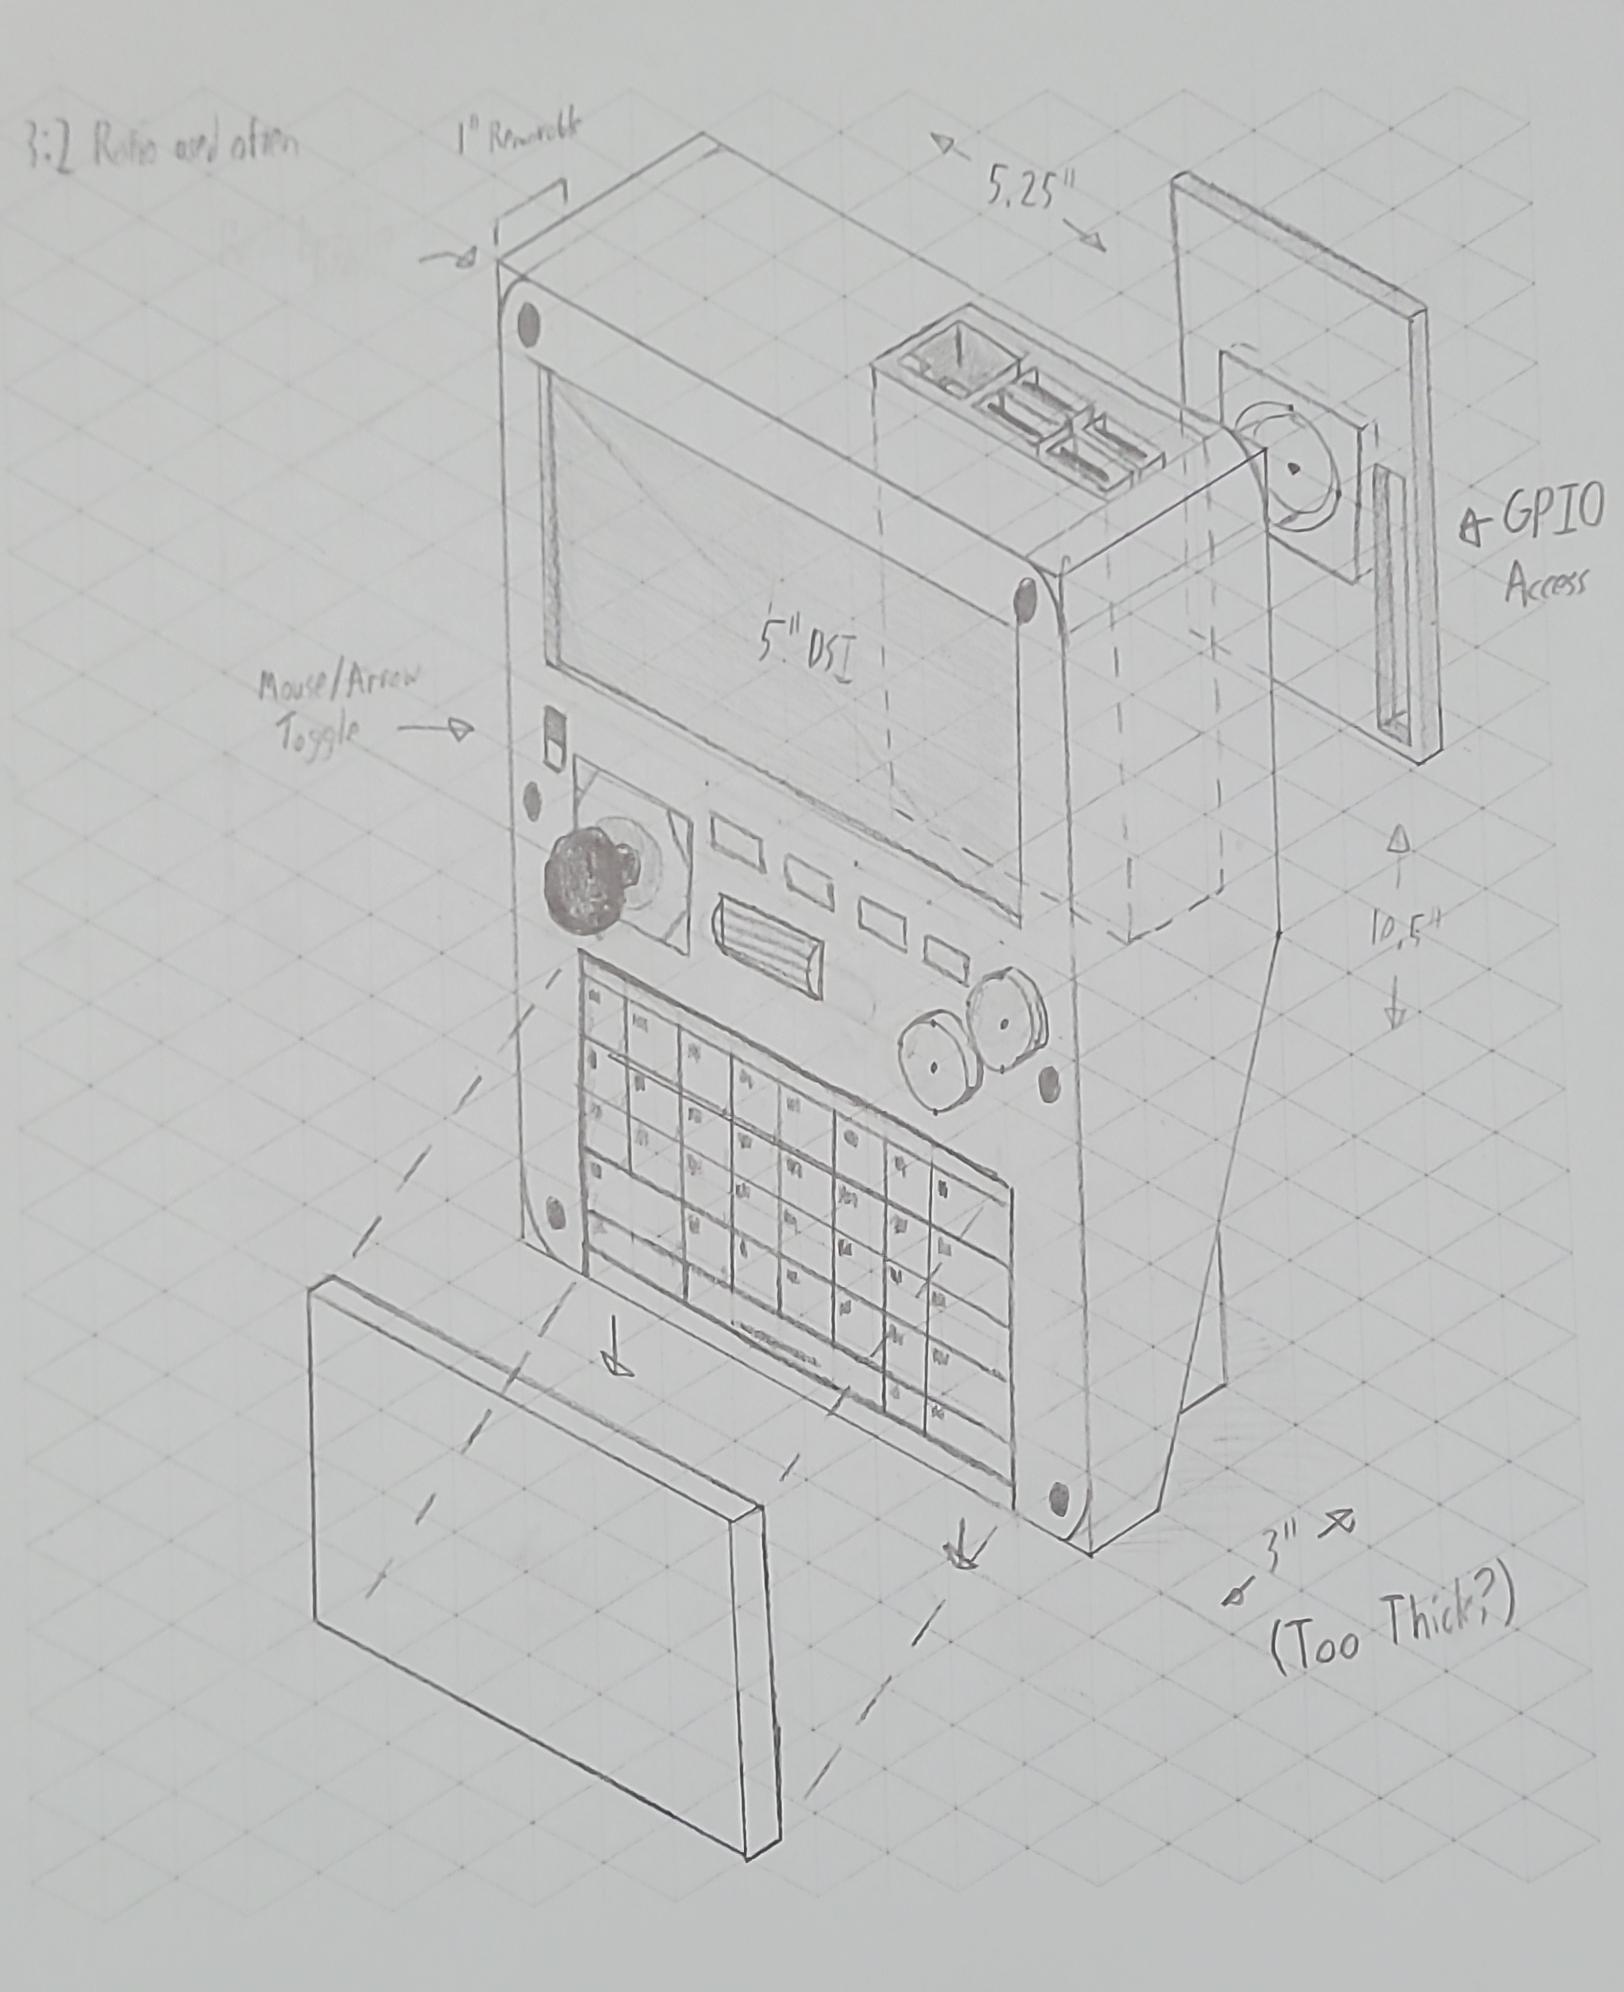 3:2 Ratio used often
1" Removable
5.25"
GPIO
Access
5" DSI
Mouse/Arrow
Toggle
10.5"
3"
(Too Thick?)